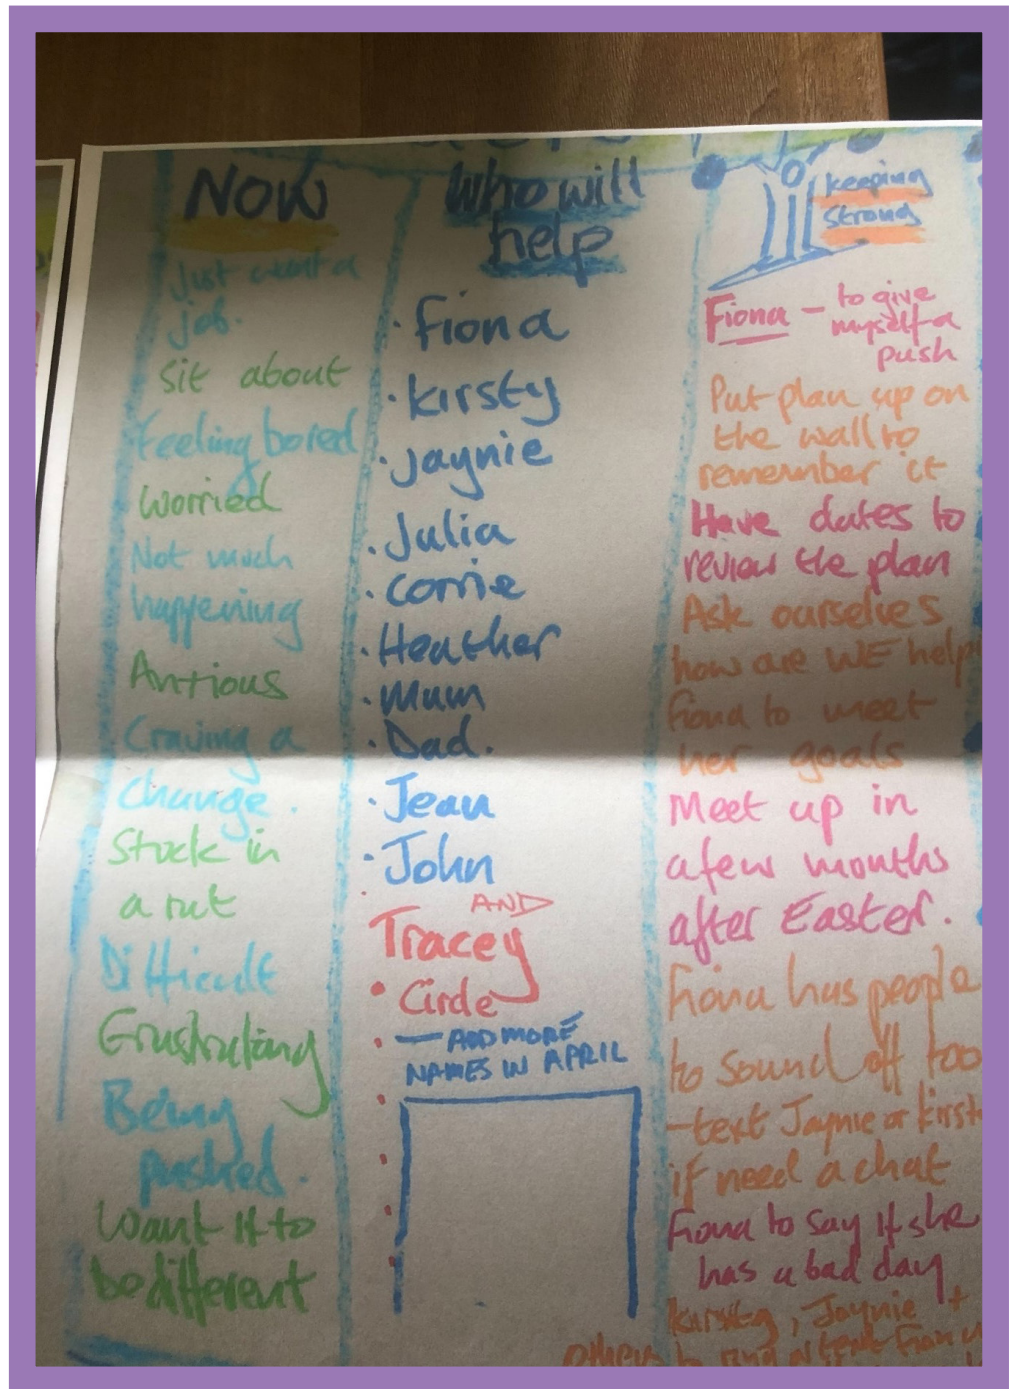 NOW
Just want a
job.
Sit about
Feeling bored
Worried
Not much
happening
Antious
Craving a
change.
Stuck in
a rut
Difficult
Grustrating
Being
pushed.
Want it to
be different
Who will
help
· Fiona
· Kirsty
· Jaynie
· Julia
· Corrie
· Heather
· Mum
· Dad.
· Jean
· John
AND
Tracey
• Circle
— ADD MORE
NAMES IN APRIL
keeping
strong
Fiona – to give
myself a
push
Put plan up on
the wall to
remember it
Have dates to
review the plan
Ask ourselves
how are WE help
Fiona to meet
her goals
Meet up in
a few months
after Easter.
Fiona has people
to sound off too
– text Jaynie or Kirst
if need a chat
Fiona to say if she
has a bad day
Kirsty, Jaynie +
others to